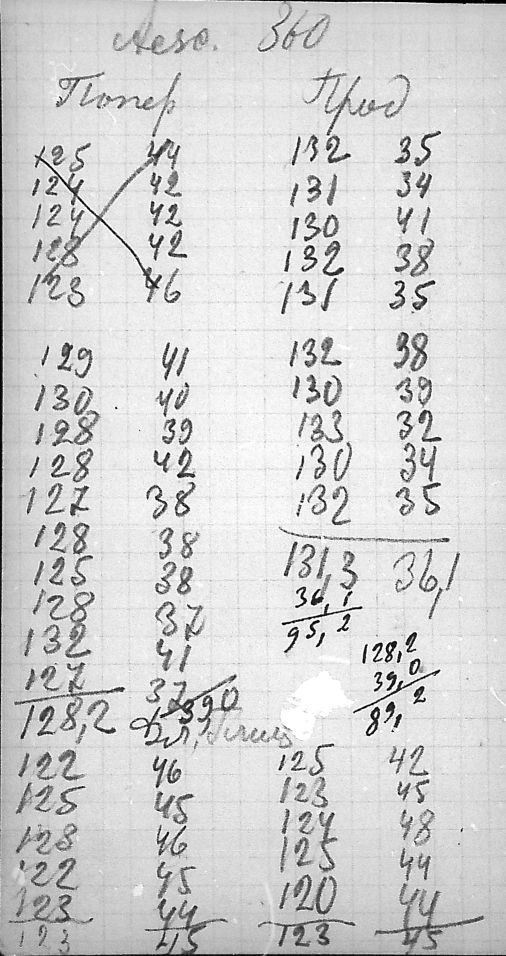 360
Попер Прод
125 44 132 35
124 42 131 34
124 42 130 41
128 42 132 38
123 46 131 35
129 41 132 38
130 40 130 39
128 39 133 32
128 42 130 34
127 38 132 35
128 38 131,3 36,1
125 38 36,1
128 37 95,2
132 41 128,2
127 37 39,0
128,2 39,0 89,2
122 46 125 42
125 45 123 45
128 46 124 48
122 45 125 44
123 44 120 44
123 45 123 45